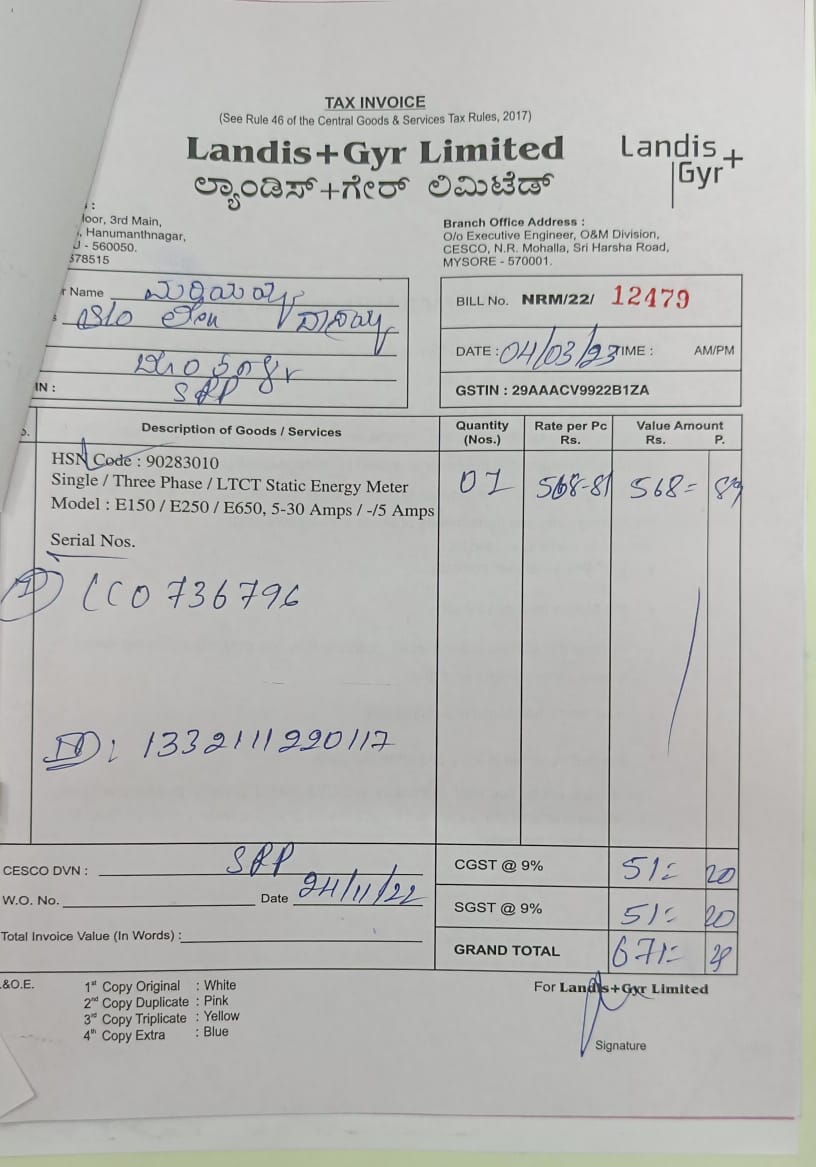 TAX INVOICE
(See Rule 46 of the Central Goods & Services Tax Rules, 2017)
Landis+Gyr Limited
ಲ್ಯಾಂಡಿಸ್+ಗೇರ್ ಲಿಮಿಟೆಡ್
Landis
Gyr+
loor, 3rd Main,
, Hanumanthnagar,
- 560050.
378515
Branch Office Address :
O/o Executive Engineer, O&M Division,
CESCO, N.R. Mohalla, Sri Harsha Road,
MYSORE - 570001.
r Name
SRP
IN :
BILL No. NRM/22/ 12479
DATE : 04/03/23 TIME : AM/PM
GSTIN : 29AAACV9922B1ZA
Description of Goods / Services
Quantity (Nos.)
Rate per Pc Rs.
Value Amount Rs. P.
HSN Code : 90283010
Single / Three Phase / LTCT Static Energy Meter
Model : E150 / E250 / E650, 5-30 Amps / -/5 Amps
01 568-81 568=
Serial Nos.
1 LC0736796
ID: 1332111220117
CESCO DVN : SRP
W.O. No. Date 24/11/22
Total Invoice Value (In Words) :
CGST @ 9% 51= 20
SGST @ 9% 51= 20
GRAND TOTAL 671=
.&O.E.
1st Copy Original : White
2nd Copy Duplicate : Pink
3rd Copy Triplicate : Yellow
4th Copy Extra : Blue
For Landis+Gyr Limited
Signature